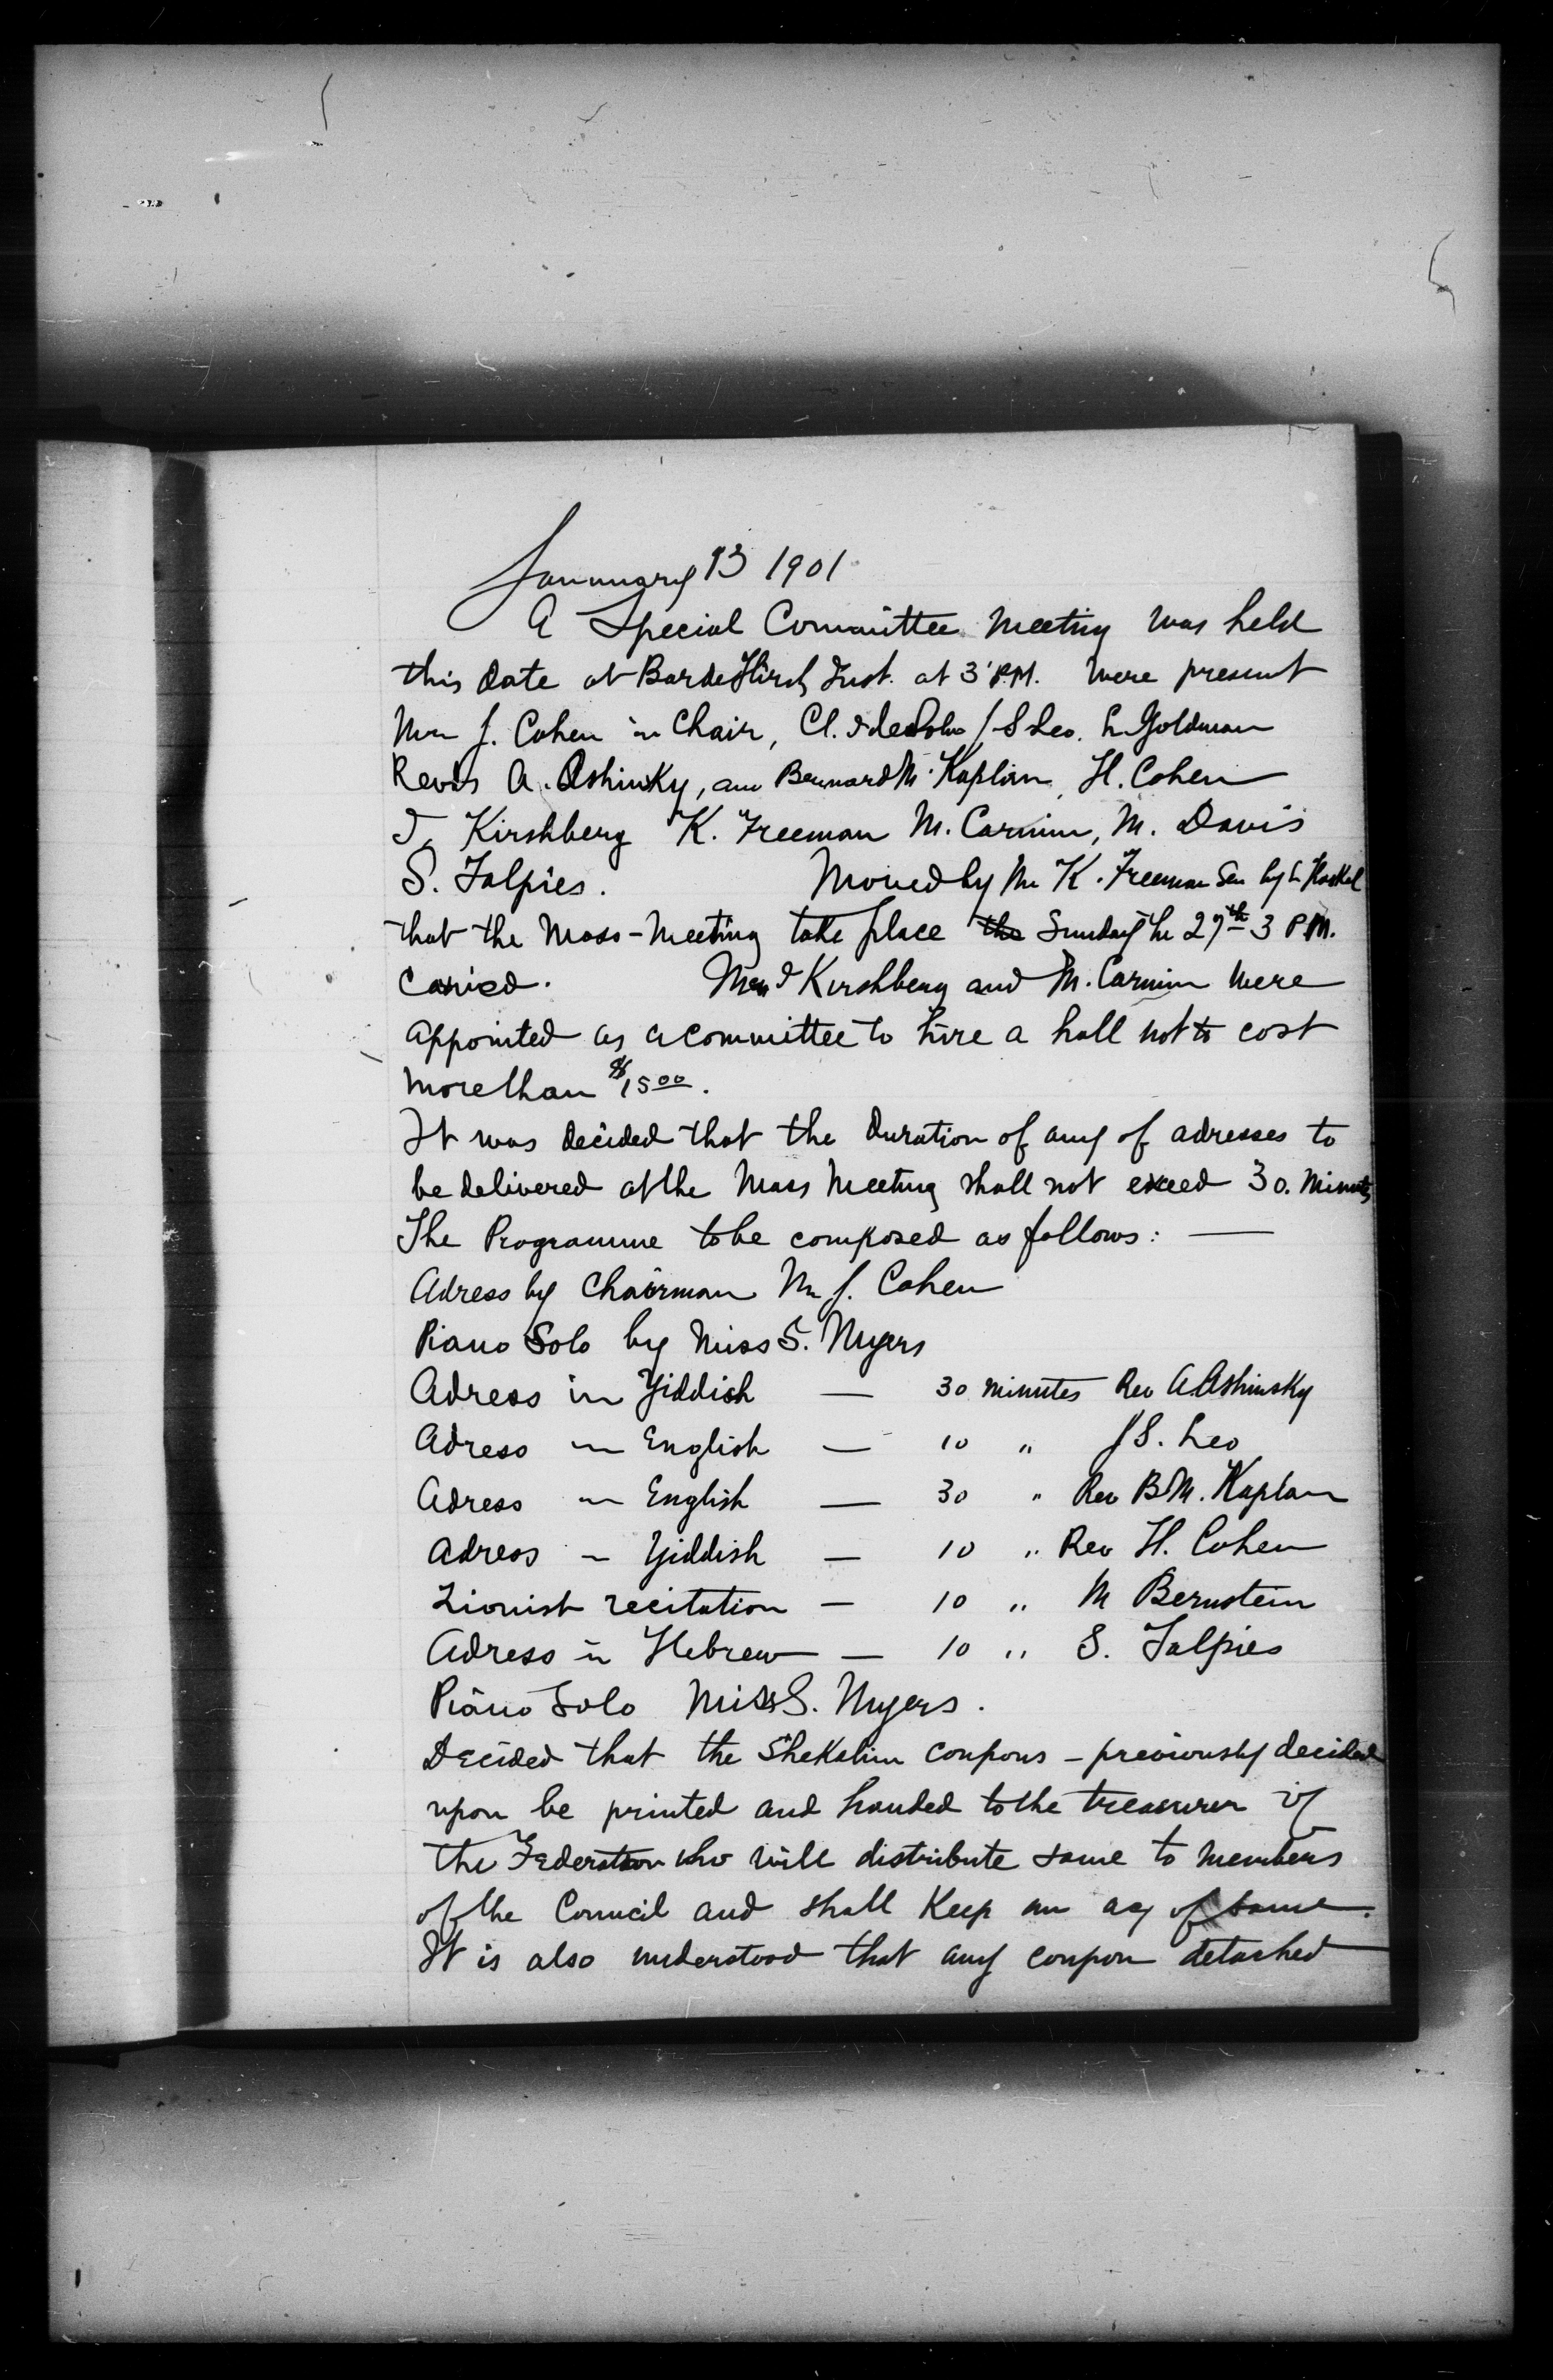 January 13 1901
A Special Committee Meeting was held
this date at Bar de Hirsh Inst. at 3 P.M. Were present
J. Cohen in Chair, Cl. I deSola J S Leo. L Goldman
Revds A. Ashinsky, and Bernard M. Kaplan, H. Cohen
I. Kirshberg K. Freeman M. Carmin, M. Davis
S. Talpies. Moved by Mr K. Freeman Sec by L
that the Mass-Meeting take place the Sunday the 27th 3 P.M.
Carried. I Kirshberg and M. Carmin were
appointed as a committee to hire a hall not to cost
more than $15 00.
It was decided that the duration of any of adresses to
be delivered at the Mass Meeting shall not exceed 30. Minutes
The Programme to be composed as follows: —
Adress by Chairman Mr J. Cohen
Piano Solo by Miss S. Myers
Adress in Yiddish — 30 minutes Rev A. Ashinsky
Adress in English — 10 " J S. Leo
Adress in English — 30 " Rev B M. Kaplan
Adress in Yiddish — 10 " Rev H. Cohen
Zionist recitation — 10 " M Bernstein
Adress in Hebrew — 10 " S. Talpies
Piano Solo Miss S. Myers.
Decided that the Shekalim coupons - previously decided
upon be printed and handed to the treasurer of
the Federation who will distribute same to members
of the Council and shall keep an of same.
It is also understood that any coupon detached